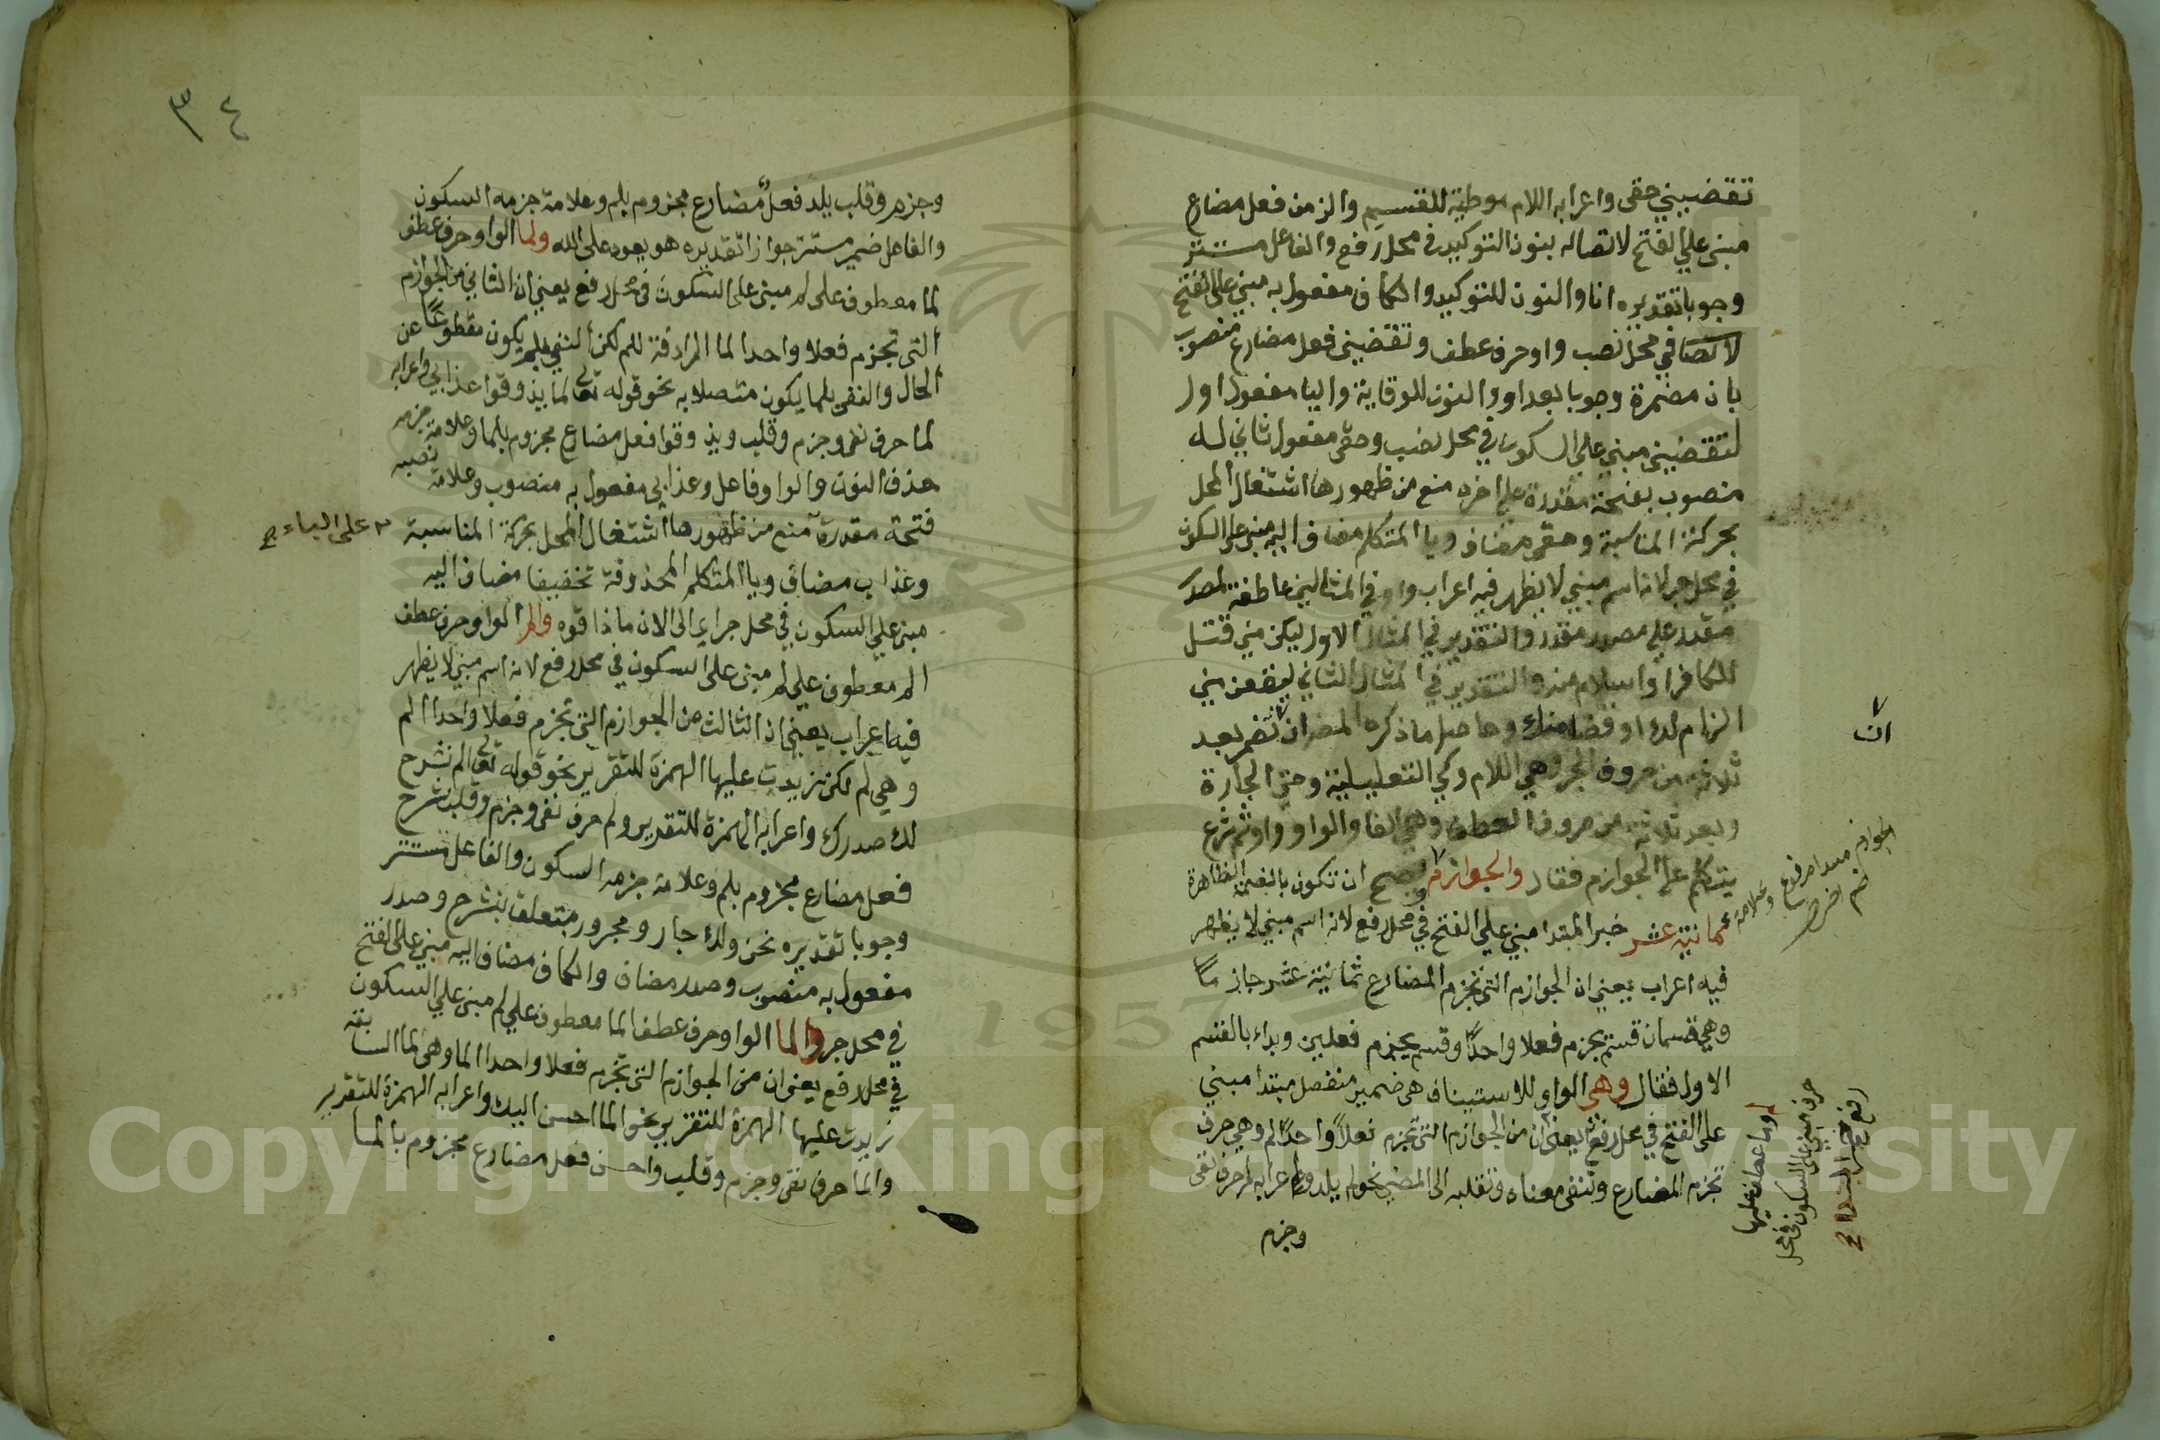 تقضيني حقي واعرابه اللام موطية للقسم والزمن فعل مضارع
مبني علي الفتح لاتصاله بنون التوكيد في محل رفع والفاعل مستتر
وجوبا تقديره انا والنون للتوكيد والكاف مفعول به مبني علي الفتح
في محل نصب واو حرف عطف وتقضيني فعل مضارع منصوب
بان مضمرة وجوبا بعد او والنون للوقاية واليا مفعول اول
لتقضيني مبني علي السكون في محل نصب وحقي مفعول ثاني له
منصوب بفتحة مقدرة علي اخره منع من ظهورها اشتغال المحل
بحركة المناسبة وحقي مضاف ويا المتكلم مضاف اليه مبني علي السكون
في محل جر لانه اسم مبني لا يظهر فيه اعراب واو في المثالين عاطفة لمصدر
مقدر علي مصدر مقدر والتقدير في المثال الاول ليكن مني قتل
للكافر او اسلام منه والتقدير في المثال الثاني ليقعن مني
الزام لك او قضا منك وحاصل ما ذكره المصر ان تضمر بعد
ان
ثلاثة من حروف الجر وهي اللام وكي التعليلية وحتي الجارة
وبعد ثلاثة من حروف العطف وهي الفا والواو واو ثم شرع
يتكلم علي الجوازم فقال والجوازم ويصح ان تكون بالضمة الظاهرة
الجوازم مبتدا مرفوع وعلامة
ثمانية عشر خبر المبتدا مبني علي الفتح في محل رفع لانه اسم مبني لا يظهر
فيه اعراب يعني ان الجوازم التي تجزم المضارع ثمانية عشر جازما
وهي قسمان قسم يجزم فعلا واحدا وقسم يجزم فعلين وبداء بالقسم
الاول فقال وهي الواو للاستيناف هي ضمير منفصل مبتدا مبني
على الفتح في محل رفع يعني ان من الجوازم التي تجزم فعلاً واحدًا لم وهي حرف
لم وما عطف عليها
حرف مبني على السكون في محل
رفع خبر المبتدا
تجزم المضارع وتنفي معناه وتقلبه الى المضي نحو لم يلد واعرابه لم حرف نفي
وجزم
٣٤
وجزم وقلب يلد فعل مضارع مجزوم بلم وعلامة جزمه السكون
والفاعل ضمير مستتر جوازا تقديره هو يعود على الله ولما الواو حرف عطف
لما معطوف على لم مبني على السكون في محل رفع يعني ان الثاني من الجوازم
التي تجزم فعلا واحدا لما المرادفة للم لكن النفي بلم يكون مقطوعًا عن
الحال والنفي بلما يكون متصلا به نحو قوله تعالى لما يذوقوا عذابي واعرابه
لما حرف نفي وجزم وقلب ويذوقوا فعل مضارع مجزوم بلما وعلامة جزمه
حذف النون والواو فاعل وعذابي مفعول به منصوب وعلامة نصبه
فتحة مقدرة منع من ظهورها اشتغال المحل بحركة المناسبة
على الباء
وعذاب مضاف ويا المتكلم المحذوفة تخفيفا مضاف اليه
مبني علي السكون في محل جر اي الى الان ماذا قوه والم الواو حرف عطف
الم معطوف علي لم مبني على السكون في محل رفع لانه اسم مبني لا يظهر
فيه اعراب يعني ان الثالث من الجوازم التي تجزم فعلا واحدا الم
وهي لم لكن زيدت عليها الهمزة للتقرير نحو قوله تعالى الم نشرح
لك صدرك واعرابه الهمزة للتقدير ولم حرف نفي وجزم وقلب نشرح
فعل مضارع مجزوم بلم وعلامة جزمه السكون والفاعل مستتر
وجوبا تقديره نحن ولك جار ومجرور متعلق بنشرح وصدر
مفعول به منصوب وصدر مضاف والكاف مضاف اليه مبني على الفتح
في محل جر والما الواو حرف عطف الما معطوف علي لم مبني علي السكون
في محل رفع يعني ان من الجوازم التي تجزم فعلا واحدا الما وهي لما السابقة
زيدت عليها الهمزة للتقرير نحو الما احسن اليك واعرابه الهمزة للتقرير
والما حرف نفي وجزم وقلب واحسن فعل مضارع مجزوم بالما
Copyright © King Saud University
1957